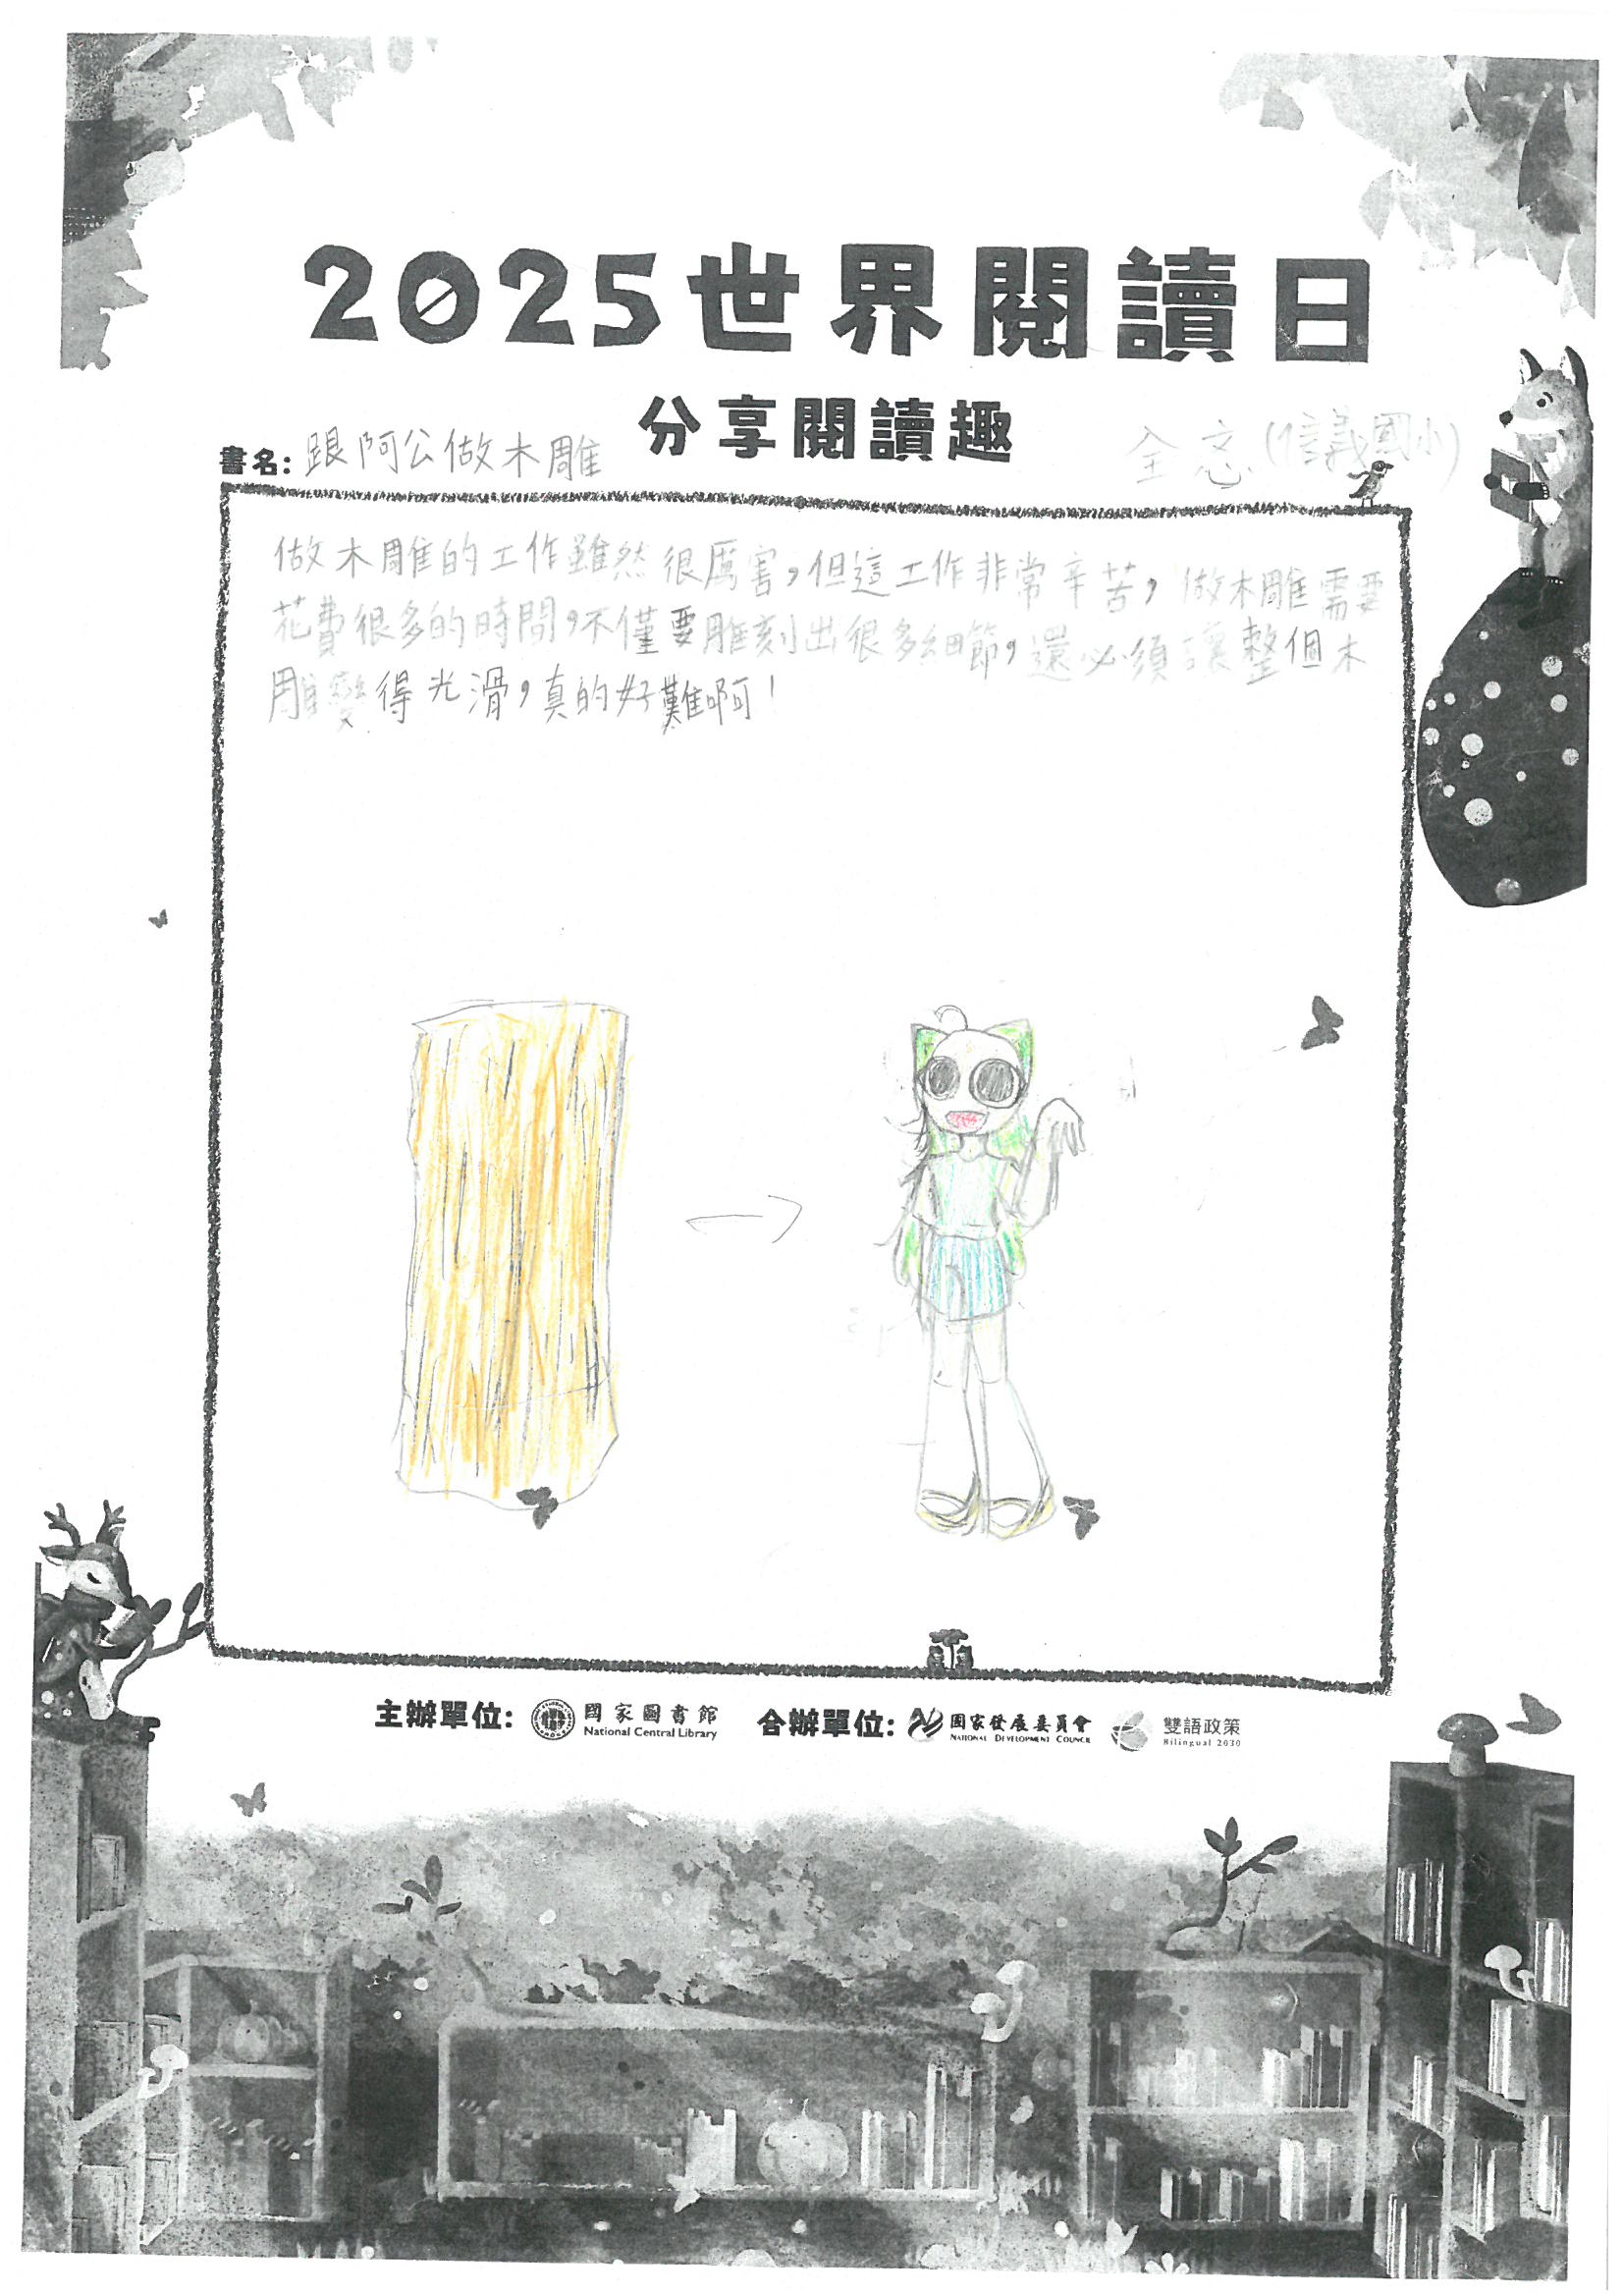 2025世界閱讀日
分享閱讀趣
書名: 跟阿公做木雕
全 (信議國小)
做木雕的工作雖然很厲害,但這工作非常辛苦,做木雕需要
花費很多的時間,不僅要雕刻出很多細節,還必須讓整個木
雕變得光滑,真的好難啊!
主辦單位: 國家圖書館 National Central Library 合辦單位: 國家發展委員會 NATIONAL DEVELOPMENT COUNCIL 雙語政策 Bilingual 2030